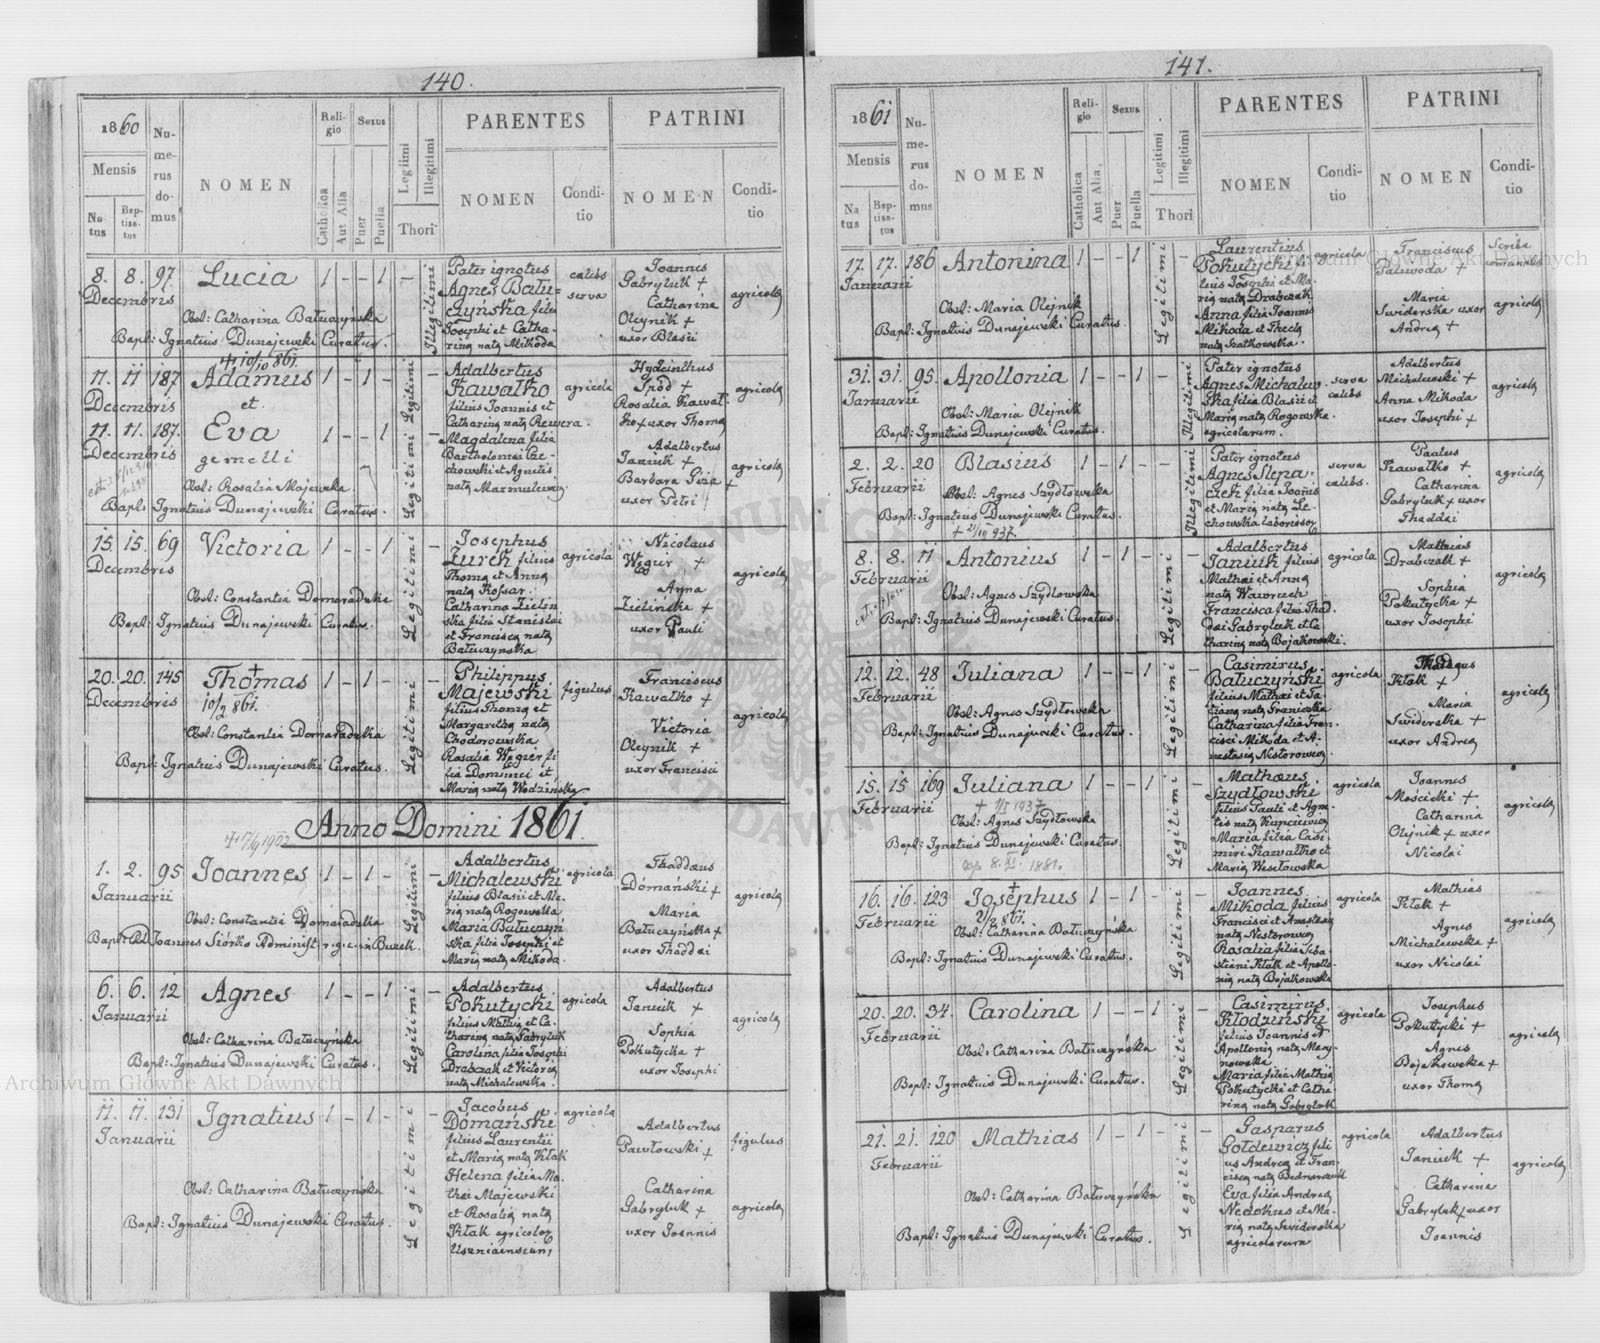 140.
1860
Mensis
Na
tus
Bap-
tisa-
tus
Nu-
me-
rus
do-
mus
NOMEN
Reli-
gio
Catholica
Aut Alia
Sexus
Puer
Puella
Legitimi
Illegitimi
Thori
PARENTES
NOMEN
Condi-
tio
PATRINI
NOMEN
Condi-
tio
8. 8. 97. Lucia 1 - - 1 -
Decembris
Obst: Catharina Batuczynska
Bapt: Ignatius Dunajewski Curatus.
Illegitimi
Pater ignotus
Agnes Batu=
czyńska filia
Josephi et Catha-
rinę natę Mikoda
caelebs
serva
Joannes
Gabryluk +
Catharina
Oleynik +
uxor Blasii
agricolę
+ 10/10 861.
11. 11. 187 Adamus 1 - 1 -
Decembris
et
11. 11. 187. Eva 1 - - 1 -
Decembris
gemelli
Obst: Rosalia Majewska
Bapt: Ignatius Dunajewski Curatus.
Legitimi
Legitimi
Adalbertus
Kawałko
filius Joannis et
Catharinę natę Rewera.
Magdalena filia
Bartholomei Le-
chowski et Agnetis
natę Marmulewicz
agricola
Hyacinthus
Środ +
Rosalia Kawał-
ko + uxor Thomę
Adalbertus
Janiuk +
Barbara Giza +
uxor Petri
agricolę
agricolę
15. 15. 69 Victoria 1 - - 1 -
Decembris
Obst: Constantia Domaradzka
Bapt: Ignatius Dunajewski Curatus.
Legitimi
Josephus
Żurek filius
Thomę et Annę
natę Kossar.
Catharina Zielin
ska filia Stanislai
et Franciscę natę
Batuczynska
agricola
Nicolaus
Węgier +
Anna
Zielińska +
uxor Pauli
agricolę
+
20. 20. 145 Thomas 1 - 1 - -
Decembris
10/2 861.
Obst: Constantia Domaradzka
Bapt: Ignatius Dunajewski Curatus.
Legitimi
Philippus
Majewski
filius Thomę et
Margarithę natę
Chodorowska
Rosalia Węgier fi
lia Dominici et
Marię natę Wodzinska
figulus
Franciscus
Kawałko +
Victoria
Oleynik +
uxor Francisci
agricolę
Anno Domini 1861.
+ 17/9 1902
1. 2. 95 Joannes 1 - 1 - -
Januarii
Obst: Constantia Domaradzka
Bapt: Joannes Siórko Administ r. g. c. in Busek.
Legitimi
Adalbertus
Michalewski
filius Blasii et Ma-
rię natę Rogowska
Maria Batuczyń
ska filia Josephi et
Marię natę Mikoda.
agricola
Thaddaeus
Domański +
Maria
Batuczyńska +
uxor Thaddai
agricolę
6. 6. 12 Agnes 1 - - 1 -
Januarii
Obst: Catharina Batuczyńska
Bapt: Ignatius Dunajewski Curatus.
Legitimi
Adalbertus
Pokutycki
filius Mathię et Ca-
tharinę natę Gabryluk
Carolina filia Josephi
Drabczak et Victorię
natę Michalewska.
agricola
Adalbertus
Janiuk +
Sophia
Pokutycka +
uxor Josephi
agricolę
11. 11. 131 Ignatius 1 - 1 - -
Januarii
Obst: Catharina Batuczyńska
Bapt: Ignatius Dunajewski Curatus.
Legitimi
Jacobus
Domański
filius Laurentii
et Marię natę Kłak
Helena filia Ma-
thei Majewski
et Rosalię natę
Kłak agricolę
Uszniaensium,
agricola
Adalbertus
Pawłowski +
Catharina
Gabryluk +
uxor Joannis
figulus
agricolę
141.
1861
Mensis
Na
tus
Bap-
tisa-
tus
Nu-
me-
rus
do-
mus
NOMEN
Reli-
gio
Catholica
Aut Alia
Sexus
Puer
Puella
Legitimi
Illegitimi
Thori
PARENTES
NOMEN
Condi-
tio
PATRINI
NOMEN
Condi-
tio
17. 17. 186 Antonina 1 - - 1 -
Januarii
Obst: Maria Olejnik
Bapt: Ignatius Dunajewski Curatus.
Legitimi
Laurentius
Pokutycki fi-
lius Josephi et Ma-
rię natę Drabczak
Anna filia Joannis
Mikoda et Theclę
natę Szatkowska.
agricola
Franciscus
Paliwoda +
Maria
Swiderska uxor
Andreę +
Scriba
comunalis
agricolę
31. 31. 95. Apollonia 1 - - 1 -
Januarii
Obst: Maria Olejnik
Bapt: Ignatius Dunajewski Curatus.
Illegitimi
Pater ignotus
Agnes Michalew-
ska filia Blasii et
Marię natę Rogowska.
agricolarum.
serva
caelebs
Adalbertus
Michalewski +
Anna Mikoda
uxor Josephi +
agricolę
2. 2. 20 Blasius 1 - 1 - -
Februarii
Obst: Agnes Szydłowska
Bapt: Ignatius Dunajewski Curatus.
Illegitimi
Pater ignotus
Agnes Slepa-
czek filia Joanis
et Marię natę Le-
chowska
serva
caelebs.
Paulus
Kawałko +
Catharina
Gabryluk + uxor
Thaddai
agricolę
+ 21/III 937.
8. 8. 11 Antonius 1 - 1 - -
Februarii
Obst: Agnes Szydłowska
Bapt: Ignatius Dunajewski Curatus.
Legitimi
Adalbertus
Janiuk filius
Mathai et Annę
natę Wawrzech
Francisca filia Thad.
dei Gabryluk et Ca
tharinę natę Bojakowski.
agricola
Mathias
Drabczak +
Sophia
Pokutycka +
uxor Josephi
agricolę
12. 12. 48 Juliana 1 - - 1 -
Februarii
Obst: Agnes Szydłowska
Bapt: Ignatius Dunajewski Curatus.
Legitimi
Casimirus
Batuczyński
filius Mathai et Ta
tianę natę Franicska
Catharina filia Fran.
cisci Mikoda et A.
nastasię Nestorowicz.
agricola
Kłak +
Maria
Swiderska +
uxor Andreę
agricolę
15. 15 169 Juliana 1 - - 1 -
Februarii
+ 1/I 1937
Obst: Agnes Szydłowska
Bapt: Ignatius Dunajewski Curatus.
Legitimi
Mathaeus
Szydłowski
filius Pauli et Agne-
tis natę Kupciewicz
Maria filia Casi-
miri Kawałko et
Marię Wesłowska
agricola
Joannes
Mościcki +
Catharina
Olejnik + uxor
Nicolai
agricolę
8. XI. 1881.
+
16. 16. 123 Josephus 1 - 1 - -
Februarii
2/2 861.
Obst: Catharina Batuczyńska
Bapt: Ignatius Dunajewski Curatus.
Legitimi
Joannes
Mikoda filius
Francisci et Anastasię
natę Nestorowicz
Rosalia filia Seba
stiani Kłak et Apollo-
nię natę Bojatkowska
agricola
Mathias
Kłak +
Agnes
Michalewska +
uxor Nicolai
agricolę
20. 20. 34. Carolina 1 - - 1 -
Februarii
Obst: Catharina Batuczyńska
Bapt: Ignatius Dunajewski Curatus.
Legitimi
Casimirus
Kłodziński
filius Joannis et
Apollonię natę Mary-
nowska
Maria filia Mathię
Pokutycki et Catha-
rinę natę Gabryluk
agricola
Josephus
Pokutycki +
Agnes
Bojatkowska +
uxor Thomę
agricolę
21. 21. 120 Mathias 1 - 1 - -
Februarii
Obst: Catharina Batuczyńska
Bapt: Ignatius Dunajewski Curatus.
Legitimi
Gasparus
Gołdewicz fili
us Andreę et Fran-
ciscę natę Bednarczuk
Eva filia Andreę
Nedokus et Ma-
rię natę Swiderska
agricolarum
agricola
Adalbertus
Janiuk +
Catharina
Gabryluk + uxor
Joannis
agricolę
Archiwum Główne Akt Dawnych
Archiwum Główne Akt Dawnych